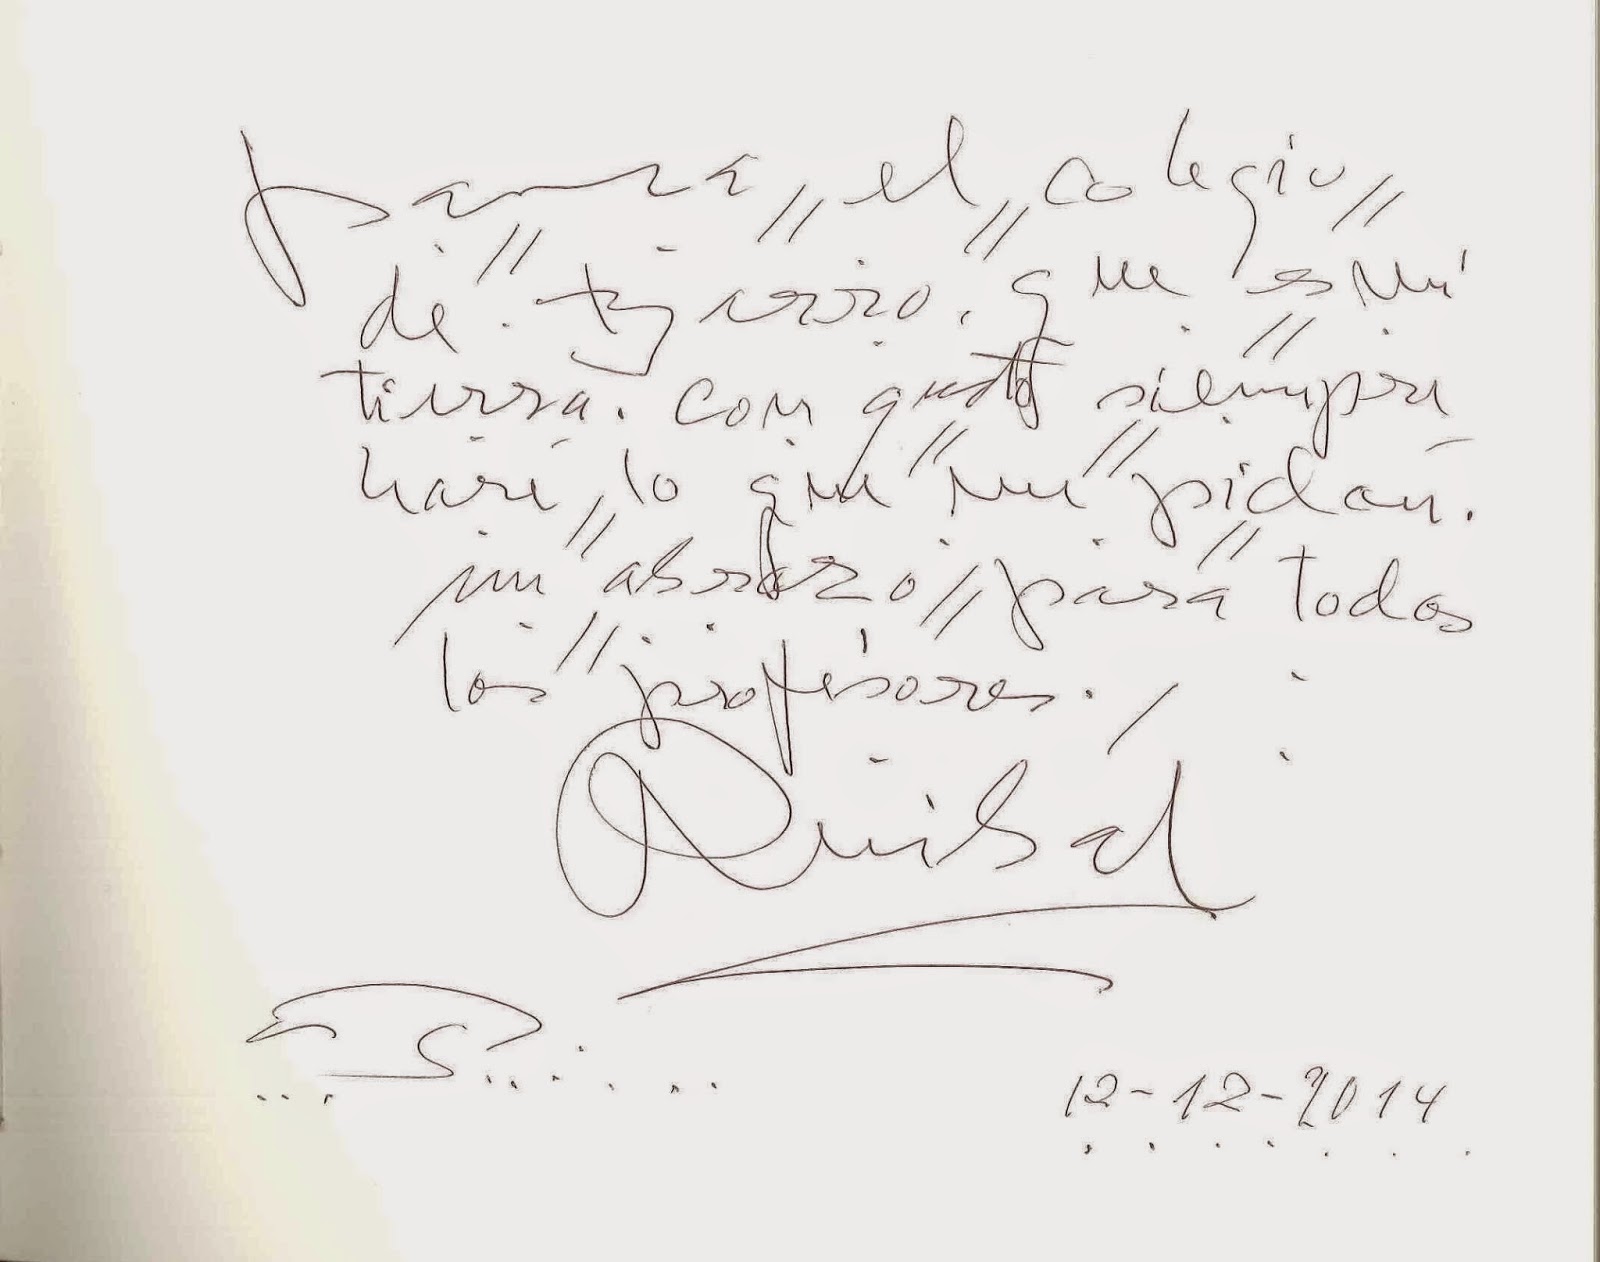 para, el, colegio,
de tijarro, que es mi
tierra. con gusto siempre
haré, lo que me pidan.
un abrazo, para todos
los profesores.
Anibal
12-12-2014